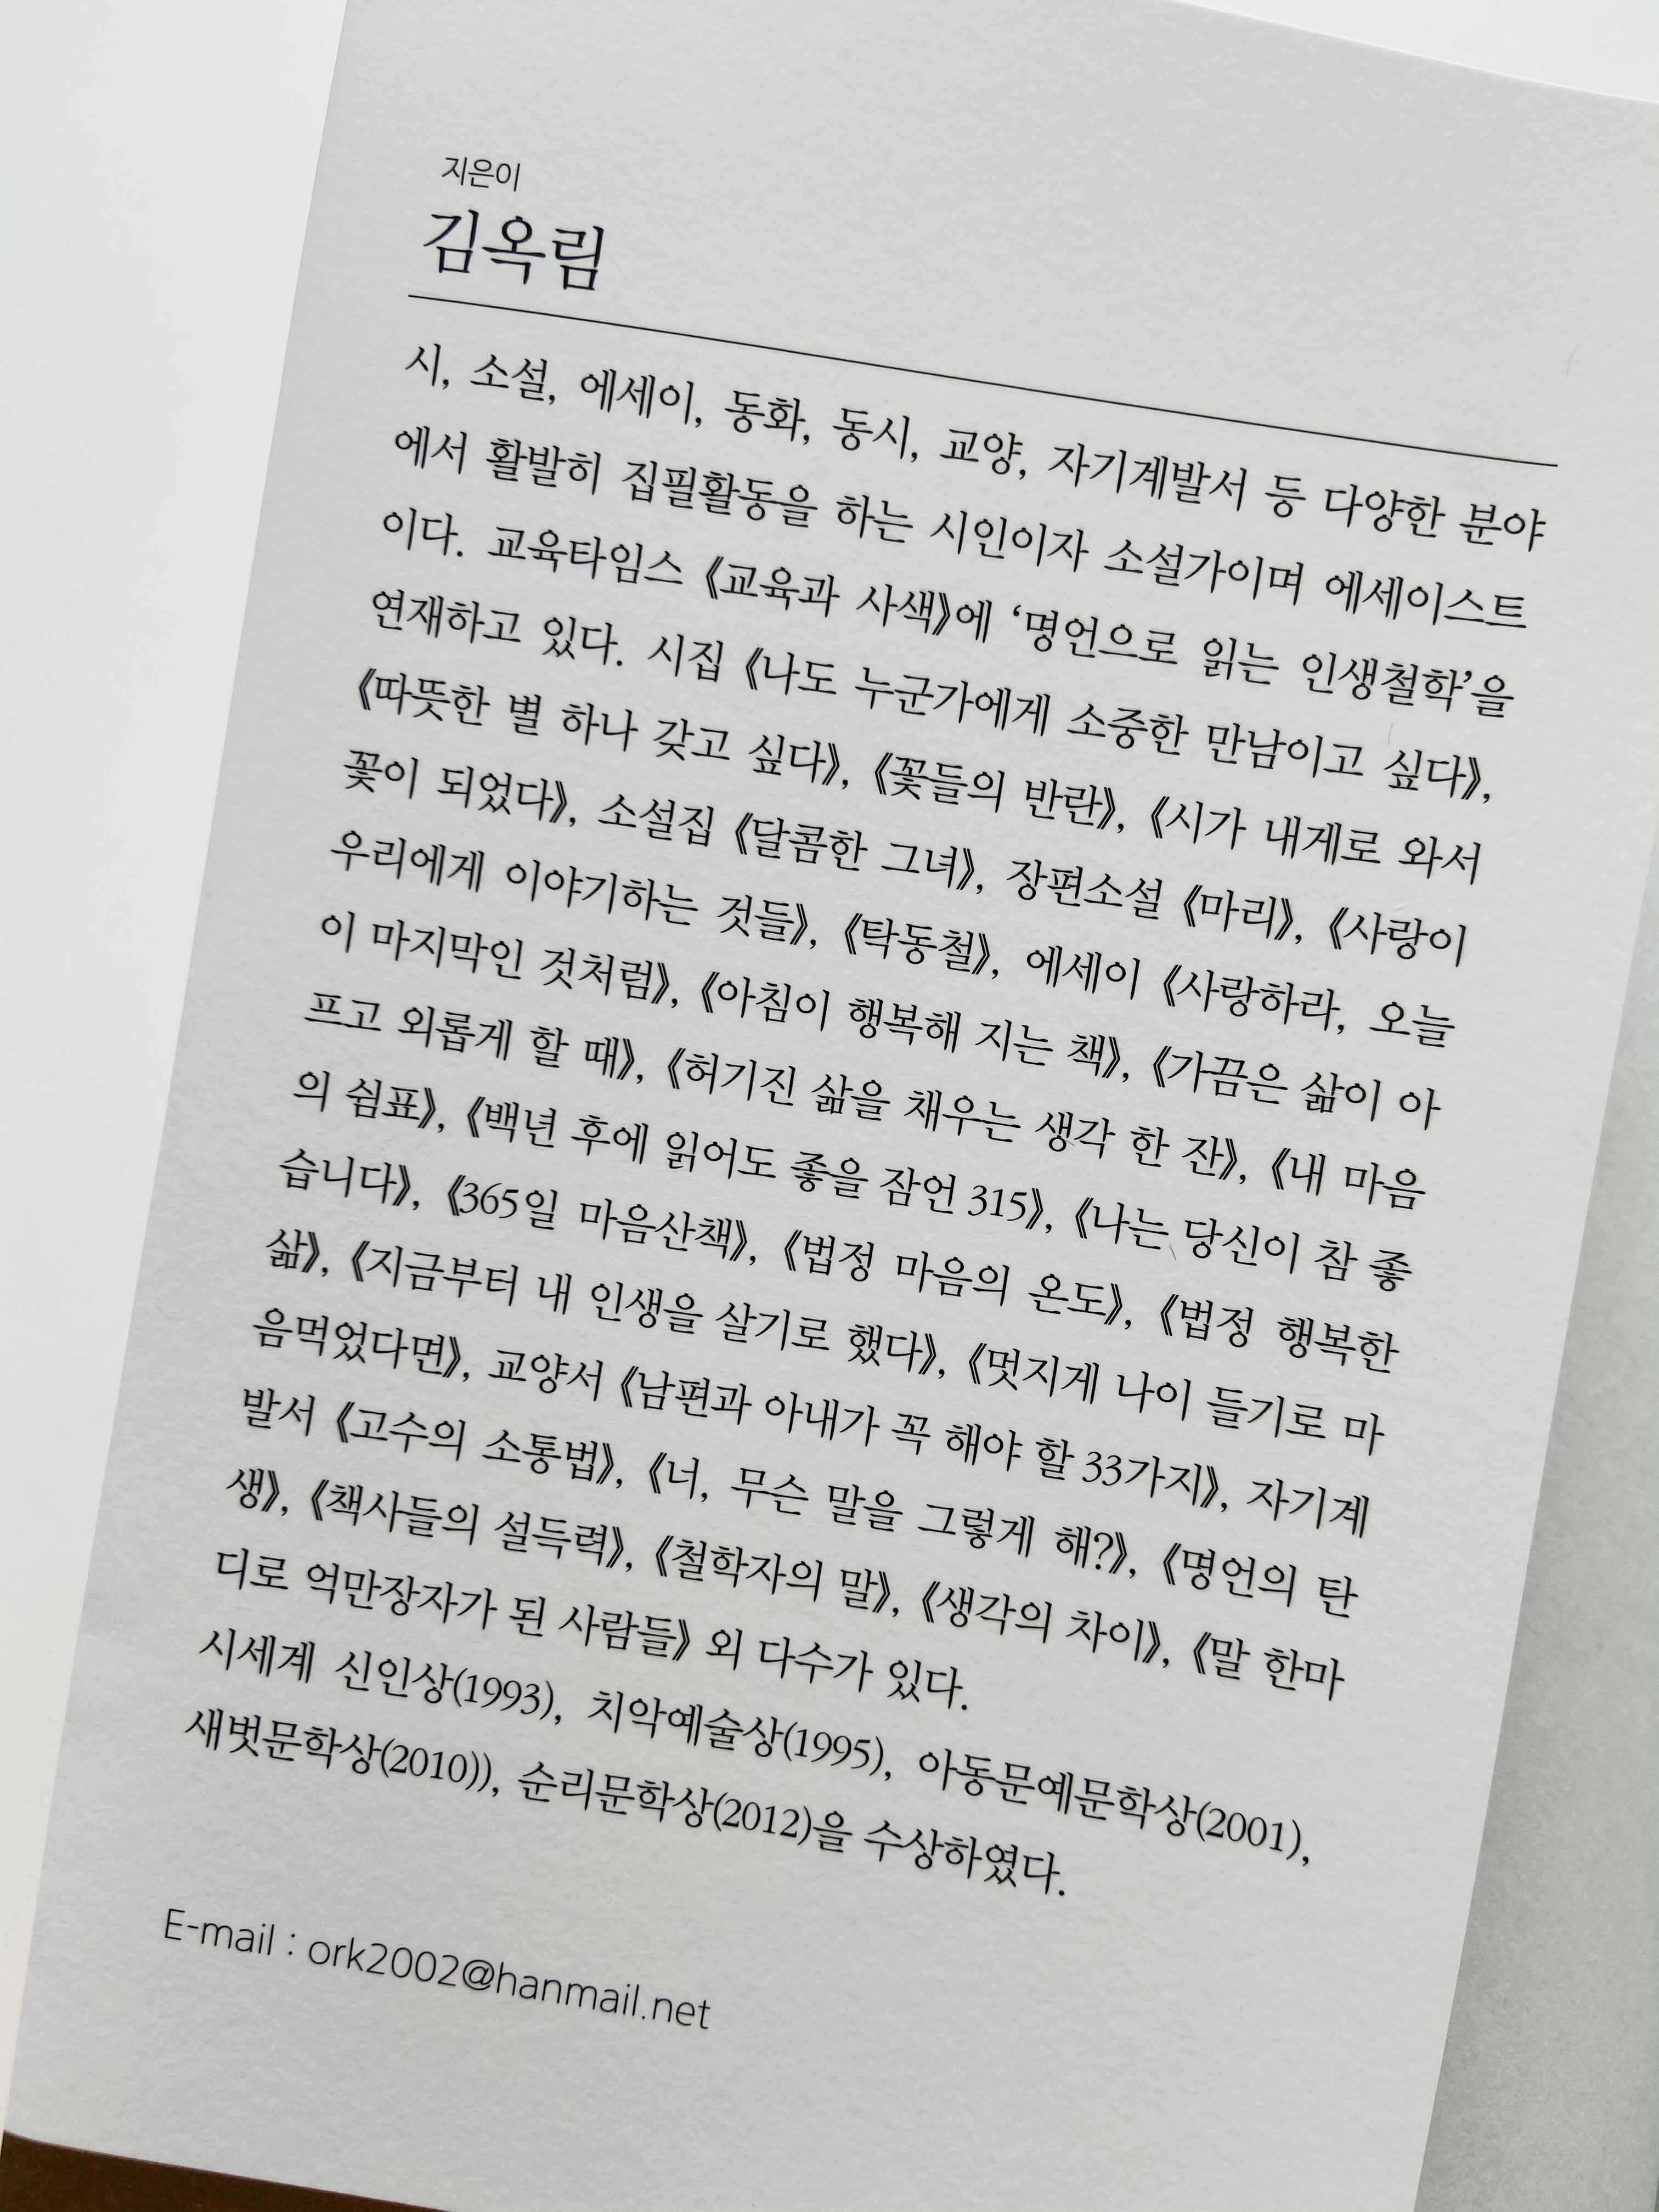 지은이
김옥림
시, 소설, 에세이, 동화, 동시, 교양, 자기계발서 등 다양한 분야
에서 활발히 집필활동을 하는 시인이자 소설가이며 에세이스트
이다. 교육타임스 《교육과 사색》에 ‘명언으로 읽는 인생철학’을
연재하고 있다. 시집 《나도 누군가에게 소중한 만남이고 싶다》,
《따뜻한 별 하나 갖고 싶다》, 《꽃들의 반란》, 《시가 내게로 와서
꽃이 되었다》, 소설집 《달콤한 그녀》, 장편소설 《마리》, 《사랑이
우리에게 이야기하는 것들》, 《탁동철》, 에세이 《사랑하라, 오늘
이 마지막인 것처럼》, 《아침이 행복해 지는 책》, 《가끔은 삶이 아
프고 외롭게 할 때》, 《허기진 삶을 채우는 생각 한 잔》, 《내 마음
의 쉼표》, 《백년 후에 읽어도 좋을 잠언 315》, 《나는 당신이 참 좋
습니다》, 《365일 마음산책》, 《법정 마음의 온도》, 《법정 행복한
삶》, 《지금부터 내 인생을 살기로 했다》, 《멋지게 나이 들기로 마
음먹었다면》, 교양서 《남편과 아내가 꼭 해야 할 33가지》, 자기계
발서 《고수의 소통법》, 《너, 무슨 말을 그렇게 해?》, 《명언의 탄
생》, 《책사들의 설득력》, 《철학자의 말》, 《생각의 차이》, 《말 한마
디로 억만장자가 된 사람들》 외 다수가 있다.
시세계 신인상(1993), 치악예술상(1995), 아동문예문학상(2001),
새벗문학상(2010)), 순리문학상(2012)을 수상하였다.
E-mail : ork2002@hanmail.net